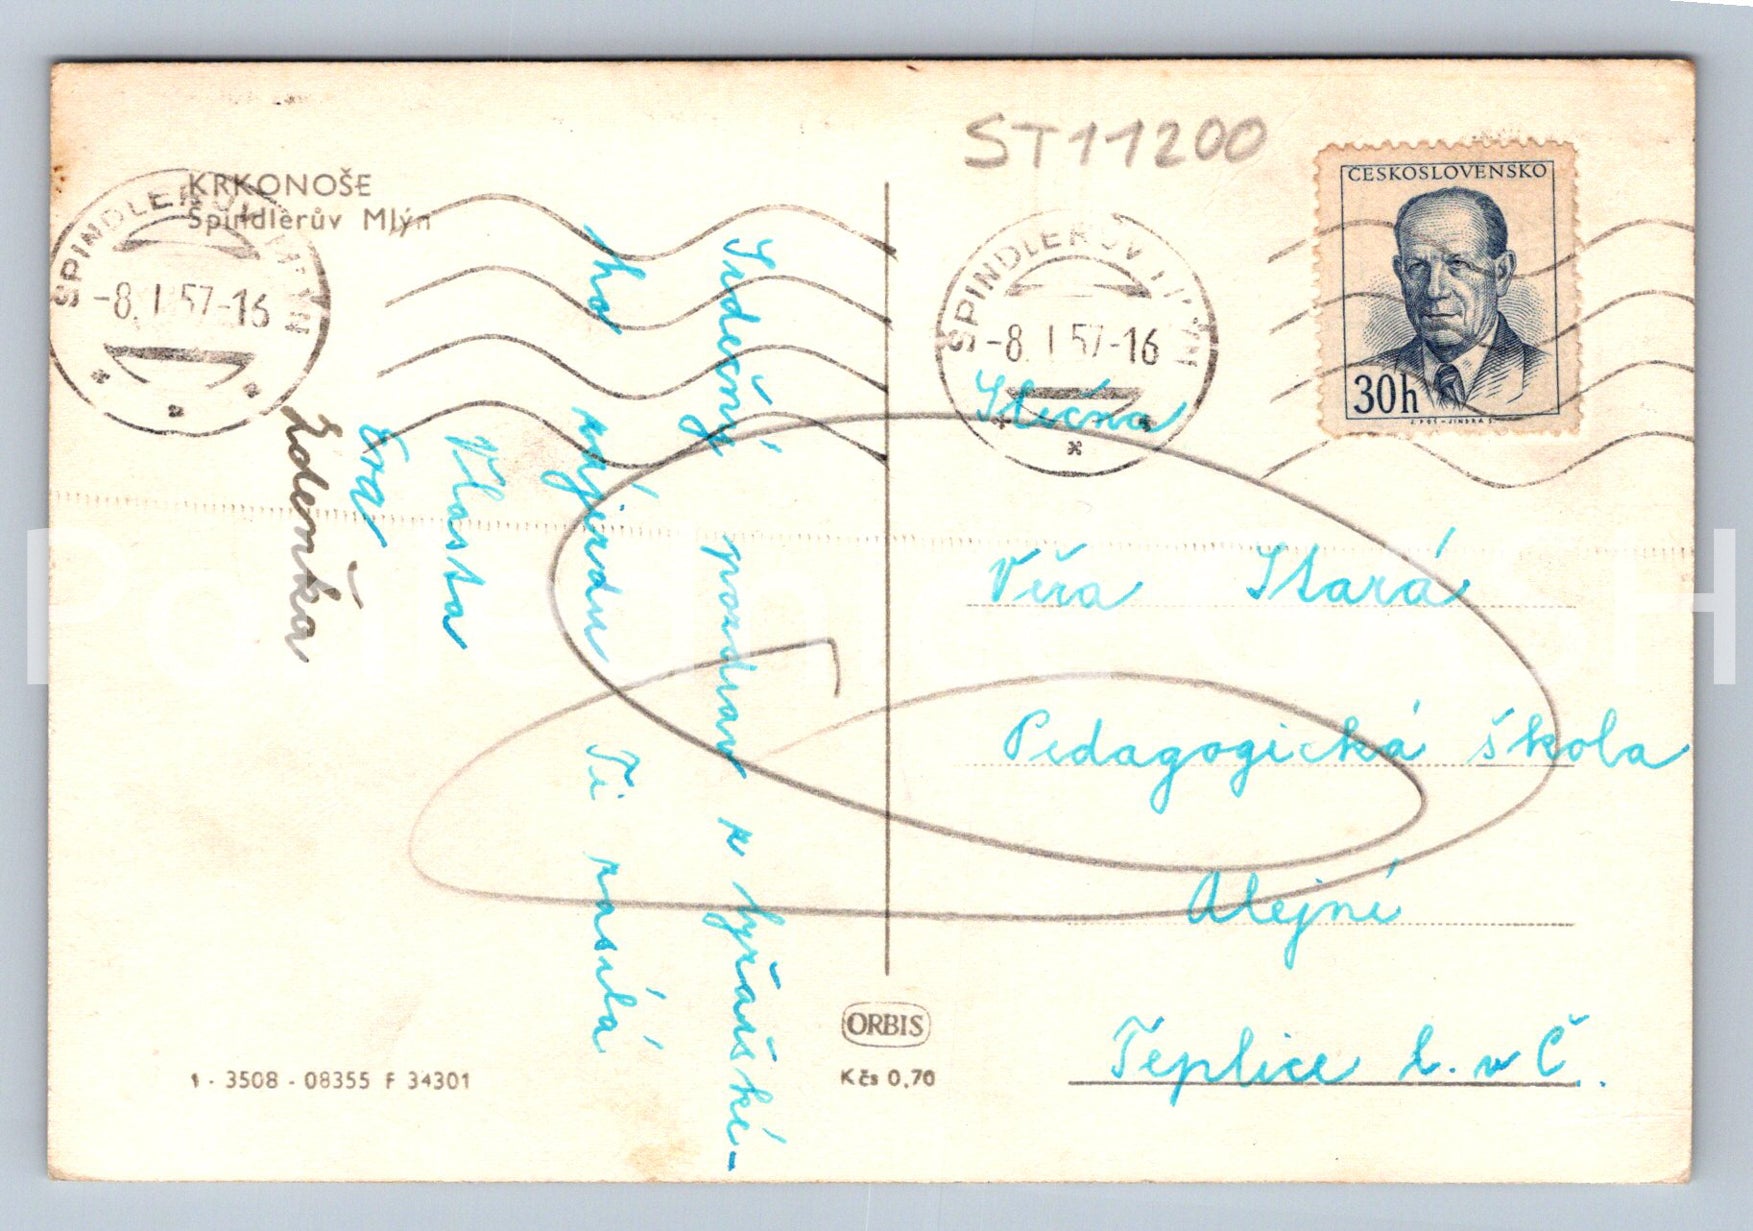 KRKONOŠE
Špindlerův Mlýn
ŠPINDLERŮV MLÝN
-8. I. 57-16
Srdečný pozdrav z lyžařské-
ho zájezdu Ti zasílá
Vlasta
Eva
Zdenička
1 - 3508 - 08355 F 34301
ORBIS
Kčs 0,70
ST11200
ŠPINDLERŮV MLÝN
-8. I. 57-16
ČESKOSLOVENSKO
30h
Slečna
Věra Stará
Pedagogická škola
Alejní
Teplice l. v Č.